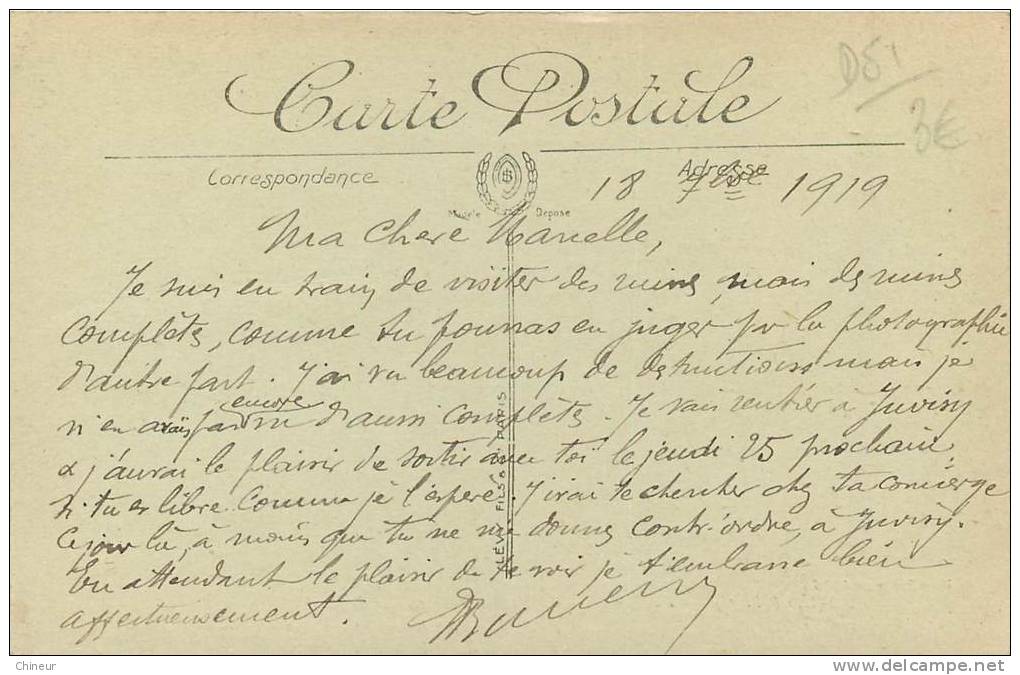 D51
3€
Carte Postale
Correspondance
Adresse
Modèle Déposé
18 7bre 1919
Ma chere Marcelle,
Je suis en train de visiter des ruines, mais des ruines
complètes, comme tu pourras en juger par la photographie
d'autre part. J'ai vu beaucoup de destructions mais je
n'en avais pas encore vu d'aussi complètes. Je vais rentrer à Juvisy
& j'aurai le plaisir de sortir avec toi le jeudi 25 prochain
si tu es libre comme je l'espere. J'irai te chercher chez ta concierge
ce jour là, à moins que tu ne me donnes contr'ordre, à Juvisy.
En attendant le plaisir de te voir je t'embrasse bien
affectueusement.
LÉVY FILS & Cie PARIS
Chineur
www.delcampe.net